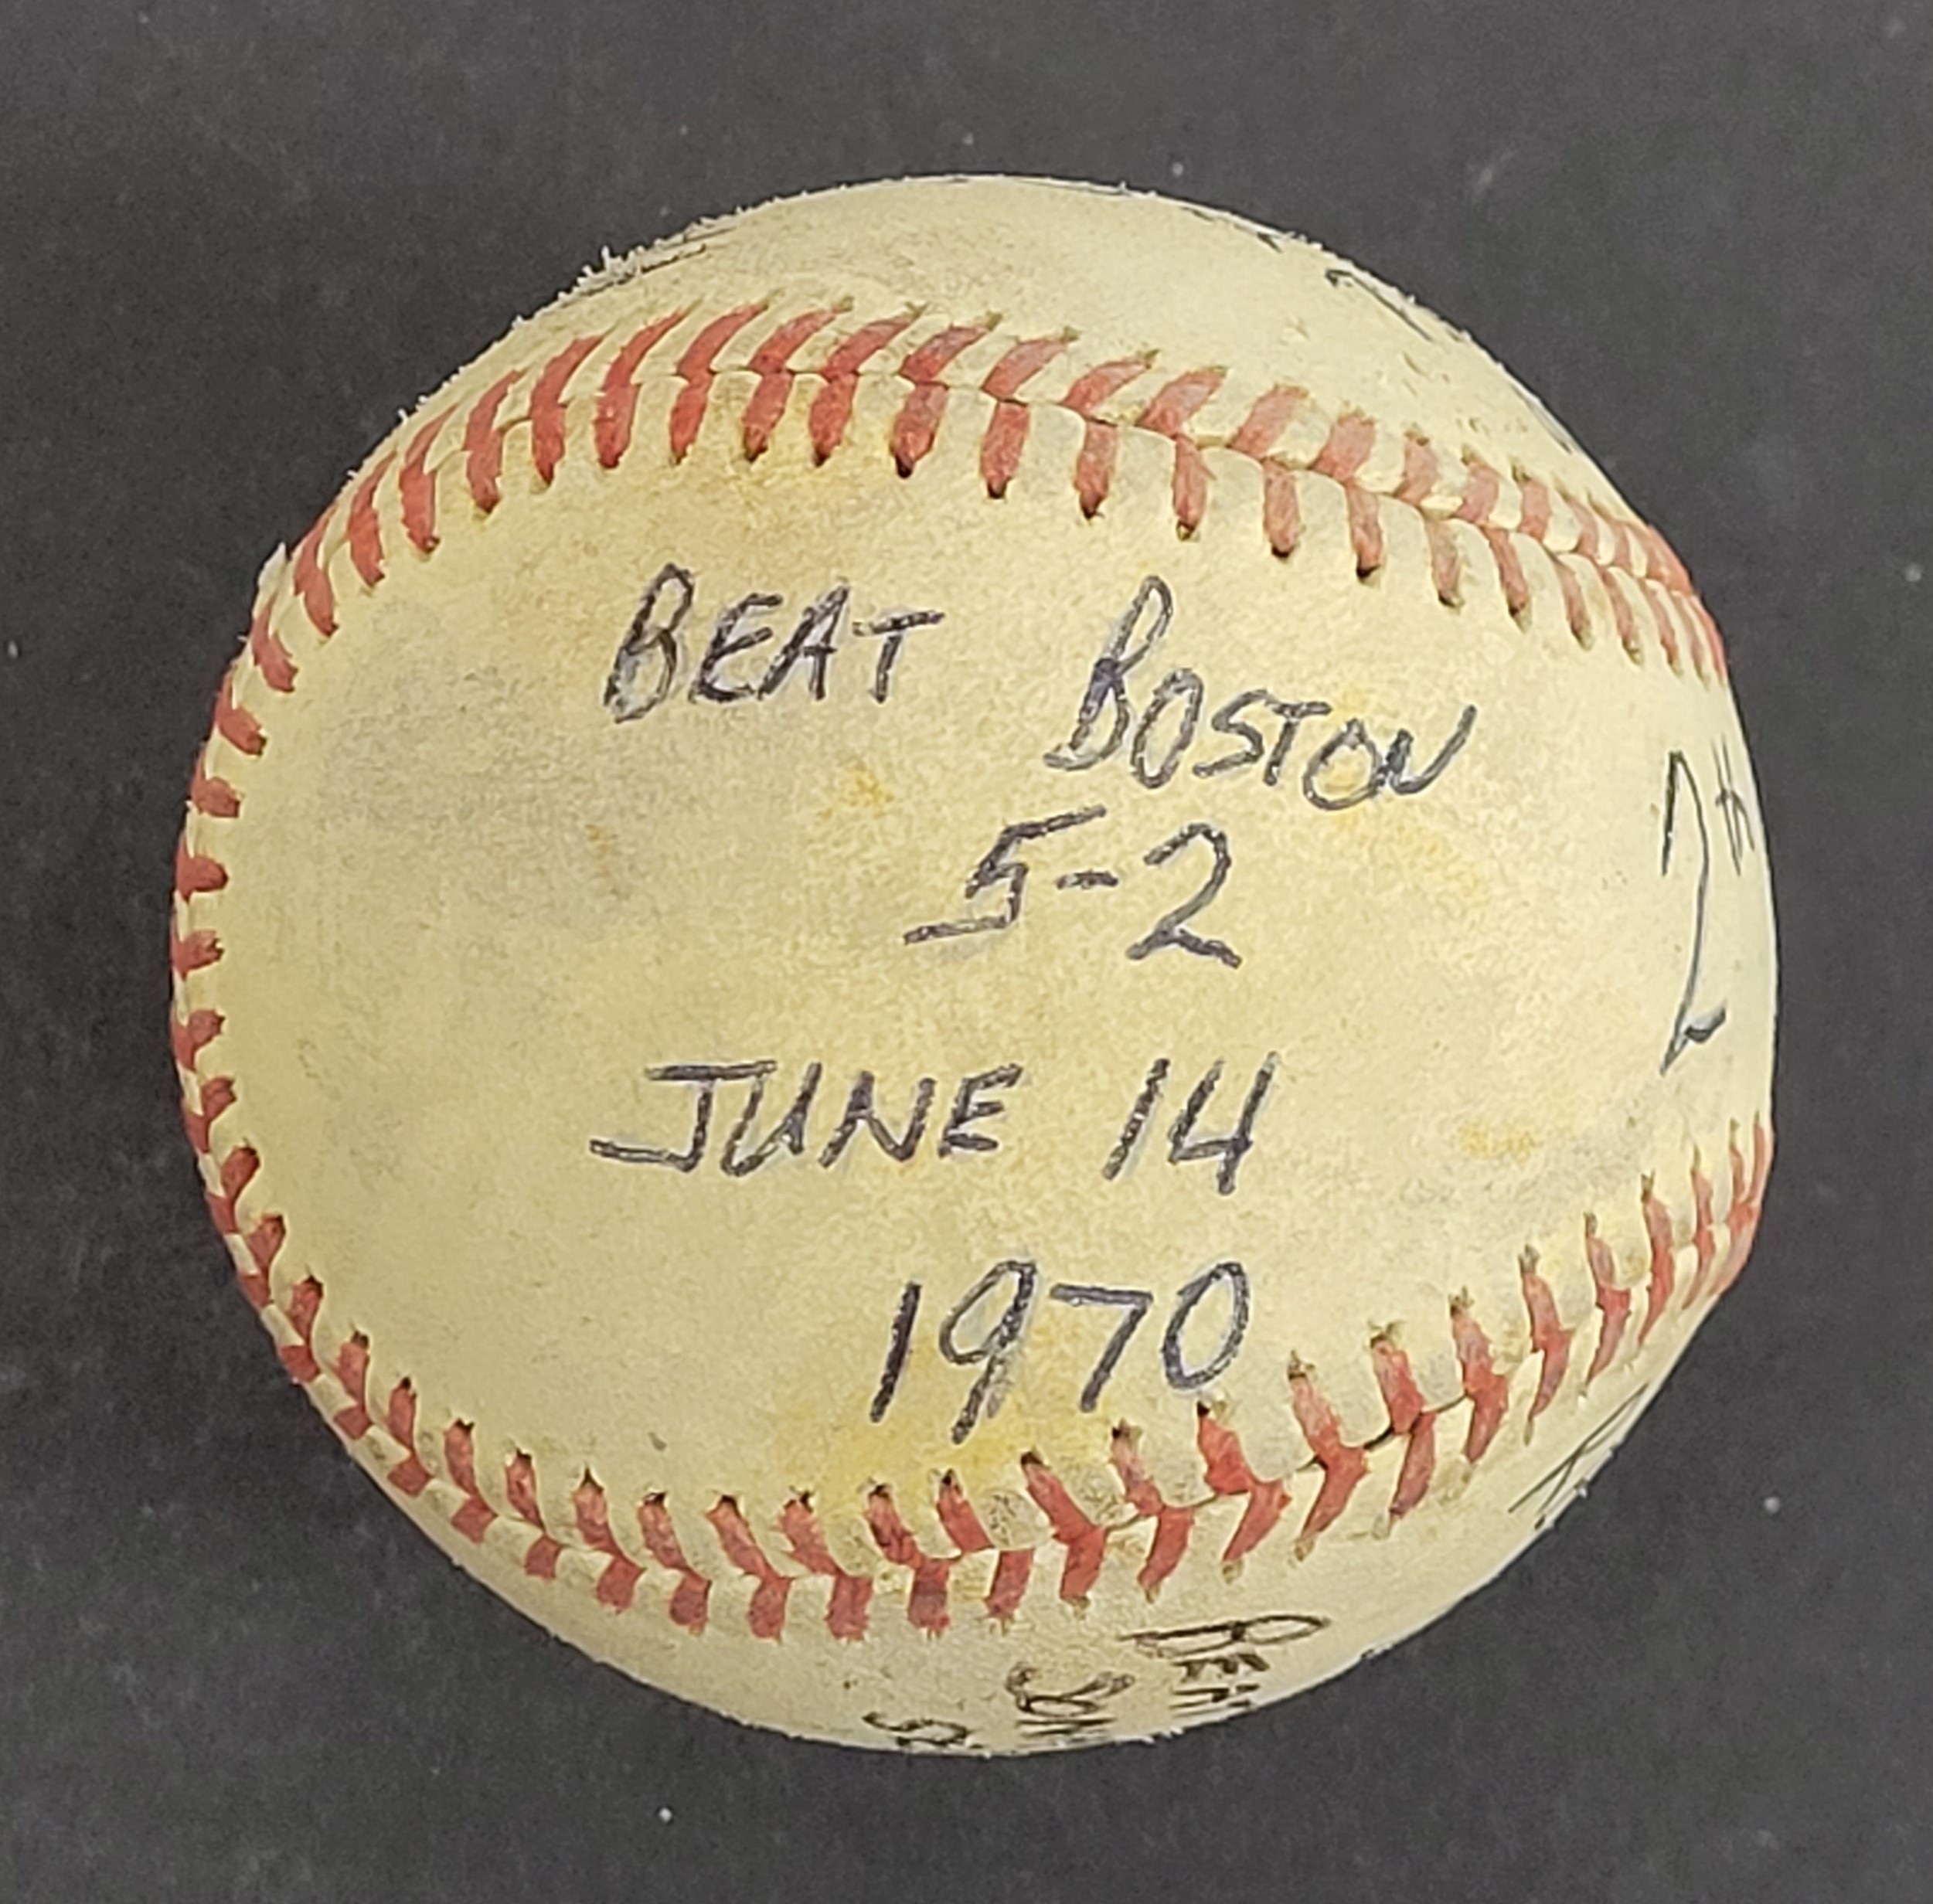 BEAT BOSTON
5-2
JUNE 14
1970